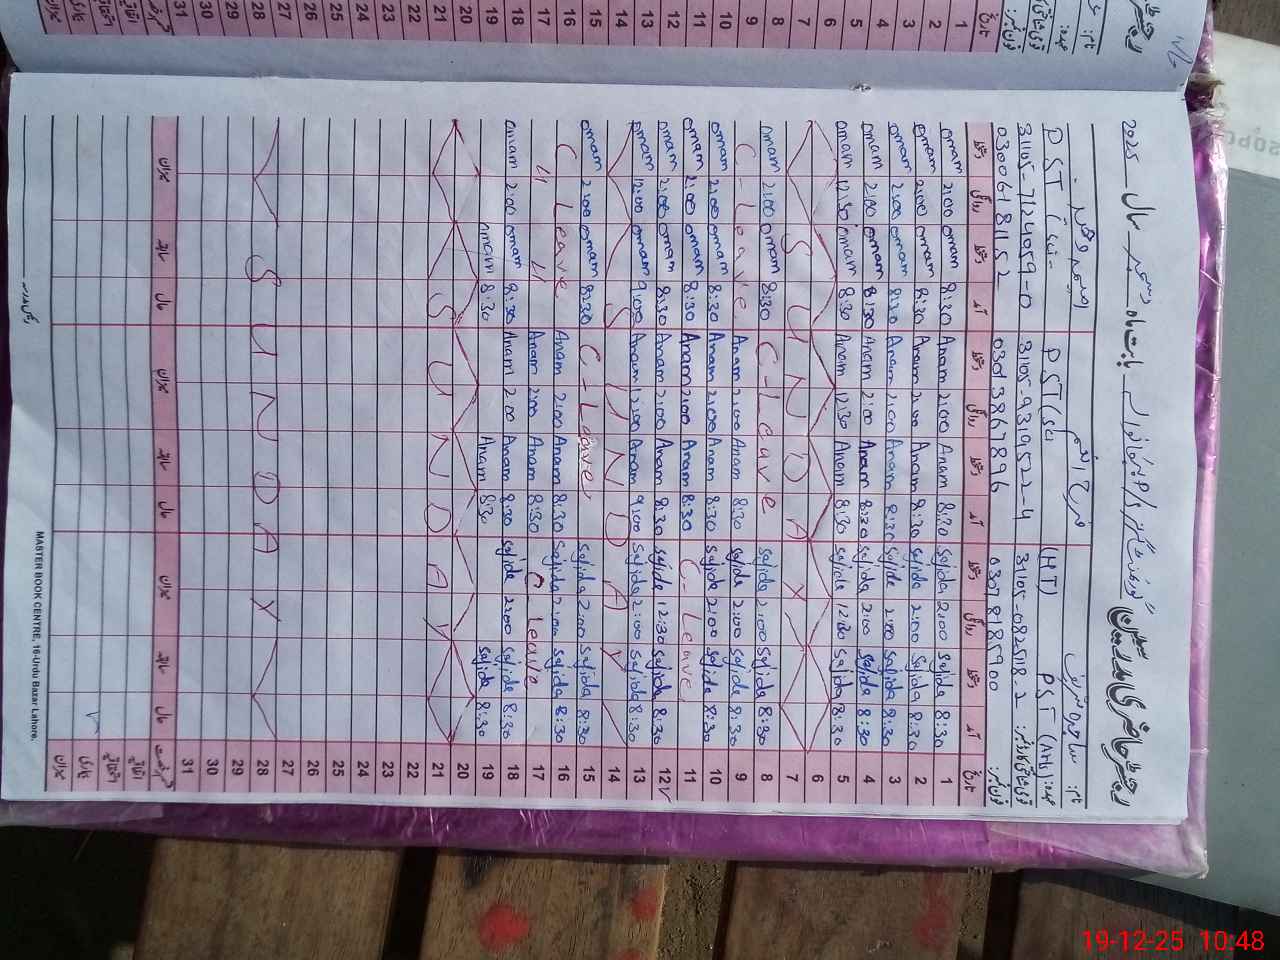 رجسٹر حاضری مدرسین
بابت ماہ دسمبر سال 2025
نام: ساجدہ شریف
عہدہ: PST (HT)
PST
PST
قومی شناختی کارڈ نمبر: 31105-0825118-2 31105-9319522-4 31105-7124059-0
فون نمبر: 03078185900 03013867896 03006181152
تاریخ آمد دستخط روانگی دستخط آمد دستخط روانگی دستخط آمد دستخط روانگی دستخط
omam 2:00 omam 8:30 Anam 2:00 Anam 8:30 Sajida 2:00 Sajida 8:30 1
omam 2:00 omam 8:30 Anam 2:00 Anam 8:30 Sajida 2:00 Sajida 8:30 2
omam 2:00 omam 8:30 Anam 2:00 Anam 8:30 Sajida 2:00 Sajida 8:30 3
omam 2:00 omam 8:30 Anam 2:00 Anam 8:30 Sajida 2:00 Sajida 8:30 4
omam 12:30 omam 8:30 Anam 12:30 Anam 8:30 Sajida 12:30 Sajida 8:30 5
6
SUNDAY 7
omam 2:00 omam 8:30 C-Leave Sajida 2:00 Sajida 8:30 8
C-Leave Anam 2:00 Anam 8:30 Sajida 2:00 Sajida 8:30 9
omam 2:00 omam 8:30 Anam 2:00 Anam 8:30 Sajida 2:00 Sajida 8:30 10
omam 2:00 omam 8:30 Anam 2:00 Anam 8:30 C-Leave 11
omam 2:00 omam 8:30 Anam 2:00 Anam 8:30 Sajida 12:30 Sajida 8:30 12
omam 12:00 omam 9:00 Anam 12:00 Anam 9:00 Sajida 2:00 Sajida 8:30 13
SUNDAY 14
omam 2:00 omam 8:30 C-Leave Sajida 2:00 Sajida 8:30 15
C Leave Anam 2:00 Anam 8:30 Sajida 2:00 Sajida 8:30 16
" " Anam 2:00 Anam 8:30 C-Leave 17
omam 2:00 omam 8:30 Anam 2:00 Anam 8:30 Sajida 2:00 Sajida 8:30 18
omam 8:30 Anam 8:30 Sajida 8:30 19
20
SUNDAY 21
22
23
24
25
26
27
SUNDAY 28
29
30
31
قسم رخصت
اتفاقیہ
بیماری
میزان
MASTER BOOK CENTRE, 16-Urdu Bazar Lahore.
19-12-25 10:48